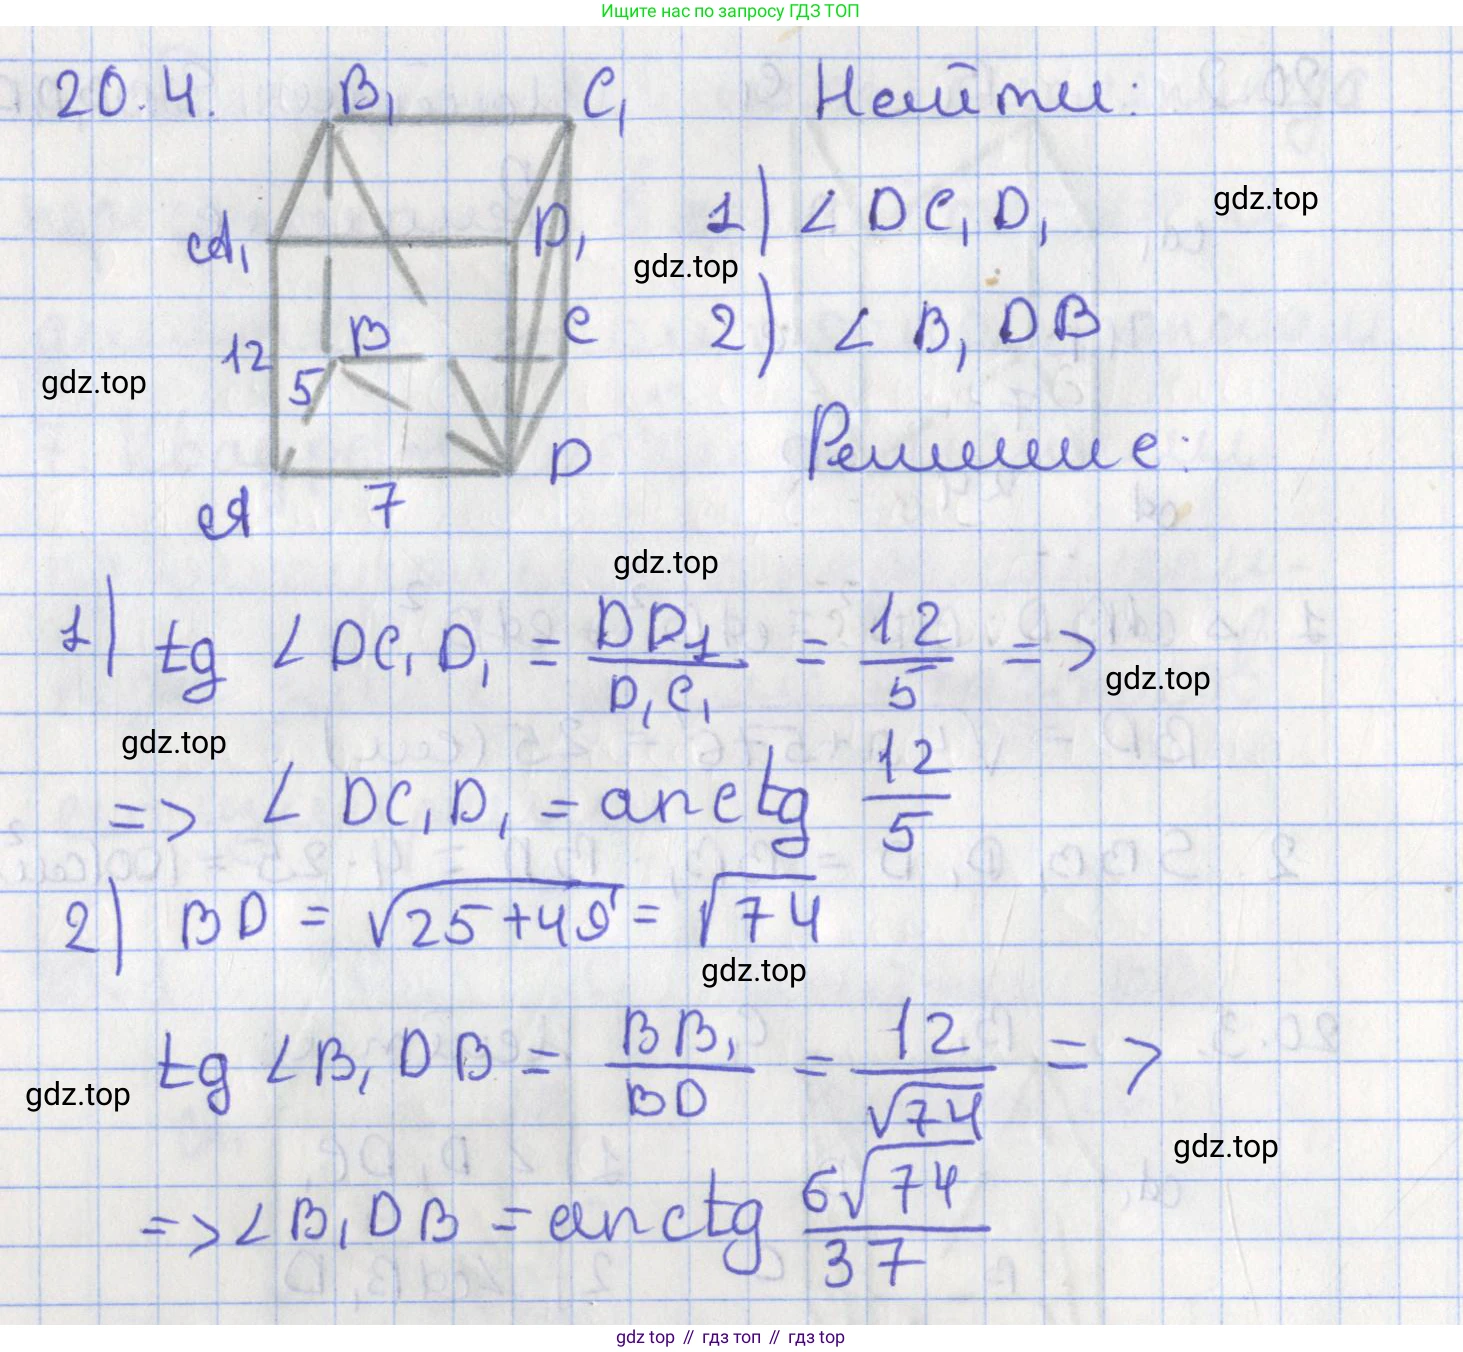 Ищите нас по запросу ГДЗ ТОП
20.4.
B₁
C₁
Найти:
A₁
D₁
1) ∠DC₁D₁
gdz.top
gdz.top
12
B
C
2) ∠B₁DB
gdz.top
5
A
7
D
Решение:
gdz.top
1) tg ∠DC₁D₁ = DD₁/D₁C₁ = 12/5 =>
gdz.top
gdz.top
=> ∠DC₁D₁ = arctg 12/5
2) BD = √25+49 = √74
gdz.top
tg ∠B₁DB = BB₁/BD = 12/√74 =>
gdz.top
gdz.top
=> ∠B₁DB = arctg 6√74/37
gdz top // гдз топ // gdz top